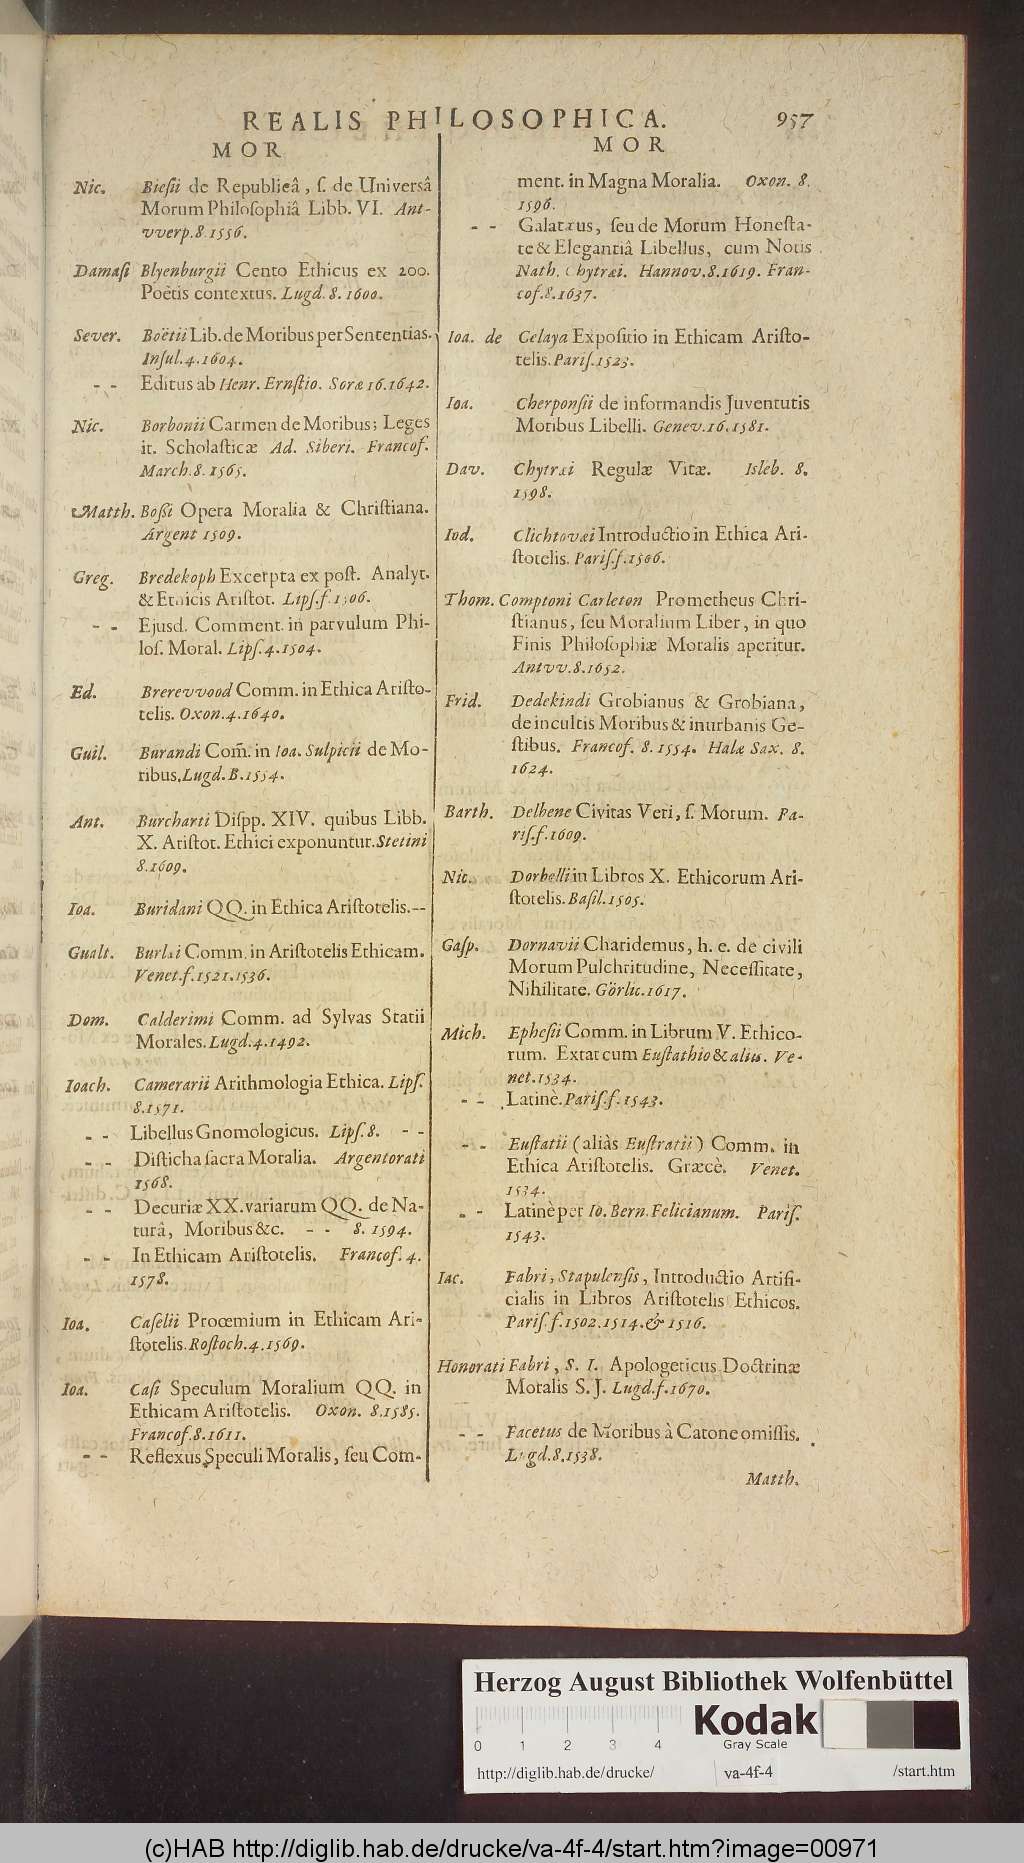 REALIS PHILOSOPHICA. 957
MOR
Nic. Biesii de Republicâ, ſ. de Universâ
Morum Philoſophiâ Libb. VI. Ant-
vverp. 8. 1556.
Damaſi Blyenburgii Cento Ethicus ex 200.
Poëtis contextus. Lugd. 8. 1600.
Sever. Boëtii Lib. de Moribus per Sententias.
Inſul. 4. 1604.
- - Editus ab Henr. Ernſtio. Soræ 16. 1642.
Nic. Borbonii Carmen de Moribus; Leges
it. Scholaſticæ Ad. Siberi. Francof.
March. 8. 1565.
Matth. Boßi Opera Moralia & Chriſtiana.
Argent 1509.
Greg. Bredekoph Excerpta ex poſt. Analyt.
& Ethicis Ariſtot. Lipſ. f. 1506.
- - Ejusd. Comment. in parvulum Phi-
loſ. Moral. Lipſ. 4. 1504.
Ed. Brerevvood Comm. in Ethica Ariſto-
telis. Oxon. 4. 1640.
Guil. Burandi Com̃. in Ioa. Sulpicii de Mo-
ribus. Lugd. B. 1554.
Ant. Burcharti Diſpp. XIV. quibus Libb.
X. Ariſtot. Ethici exponuntur. Stetini
8. 1609.
Ioa. Buridani QQ. in Ethica Ariſtotelis. --
Gualt. Burlæi Comm. in Ariſtotelis Ethicam.
Venet. f. 1521. 1536.
Dom. Calderimi Comm. ad Sylvas Statii
Morales. Lugd. 4. 1492.
Ioach. Camerarii Arithmologia Ethica. Lipſ.
8. 1571.
- - Libellus Gnomologicus. Lipſ. 8. - -
- - Diſticha ſacra Moralia. Argentorati
1568.
- - Decuriæ XX. variarum QQ. de Na-
turâ, Moribus &c. - - 8. 1594.
- - In Ethicam Ariſtotelis. Francof. 4.
1578.
Ioa. Caſelii Proœmium in Ethicam Ari-
ſtotelis. Roſtoch. 4. 1569.
Ioa. Caſi Speculum Moralium QQ. in
Ethicam Ariſtotelis. Oxon. 8. 1585.
Francof. 8. 1611.
- - Reflexus Speculi Moralis, ſeu Com-
MOR
ment. in Magna Moralia. Oxon. 8.
1596.
- - Galatæus, ſeu de Morum Honeſta-
te & Elegantiâ Libellus, cum Notis
Nath. Chytræi. Hannov. 8. 1619. Fran-
cof. 8. 1637.
Ioa. de Celaya Expoſitio in Ethicam Ariſto-
telis. Pariſ. 1523.
Ioa. Cherponſii de informandis Juventutis
Moribus Libelli. Genev. 16. 1581.
Dav. Chytræi Regulæ Vitæ. Isleb. 8.
1598.
Iod. Clichtovæi Introductio in Ethica Ari-
ſtotelis. Pariſ. f. 1506.
Thom. Comptoni Carleton Prometheus Chri-
ſtianus, ſeu Moralium Liber, in quo
Finis Philoſophiæ Moralis aperitur.
Antvv. 8. 1652.
Frid. Dedekindi Grobianus & Grobiana,
de incultis Moribus & inurbanis Ge-
ſtibus. Francof. 8. 1554. Halæ Sax. 8.
1624.
Barth. Delbene Civitas Veri, ſ. Morum. Pa-
riſ. f. 1609.
Nic. Dorbelli in Libros X. Ethicorum Ari-
ſtotelis. Baſil. 1505.
Gaſp. Dornavii Charidemus, h. e. de civili
Morum Pulchritudine, Neceſſitate,
Nihilitate. Görlic. 1617.
Mich. Epheſii Comm. in Librum V. Ethico-
rum. Extat cum Euſtathio & aliis. Ve-
net. 1534.
- - Latinè. Pariſ. f. 1543.
- - Euſtatii (aliàs Euſtratii) Comm. in
Ethica Ariſtotelis. Græcè. Venet.
1534.
- - Latinè per Io. Bern. Felicianum. Pariſ.
1543.
Iac. Fabri, Stapulenſis, Introductio Artifi-
cialis in Libros Ariſtotelis Ethicos.
Pariſ. f. 1502. 1514. & 1516.
Honorati Fabri, S. I. Apologeticus Doctrinæ
Moralis S. J. Lugd. f. 1670.
- - Facetus de Moribus à Catone omiſſis.
Lugd. 8. 1538.
Matth.
Herzog August Bibliothek Wolfenbüttel
Kodak
Gray Scale
0 1 2 3 4
http://diglib.hab.de/drucke/ va-4f-4 /start.htm
(c)HAB http://diglib.hab.de/drucke/va-4f-4/start.htm?image=00971